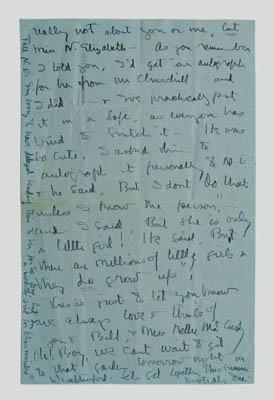 really not about you or me, but
Miss N. Elizabeth - As you remember
I told you, I'd get an autograph
for her from Mr Churchill - and
I did - & I've practically put
it in a safe, as everyone has
tried to snitch it - He was
so cute, I asked him to
autograph it personally to N.E.
& he said, But I dont do that
unless I know the person, -
and I said But she is only
a little girl! He said, But
there are millions of little girls &
they do grow up!
This is just to let you know
we always love & think of
you & Bill & Miss Nellie
Oh! Boy, we can't wait to get
to that garden tomorrow night in
this summer
Tell N.E. I'm sorry to have delayed